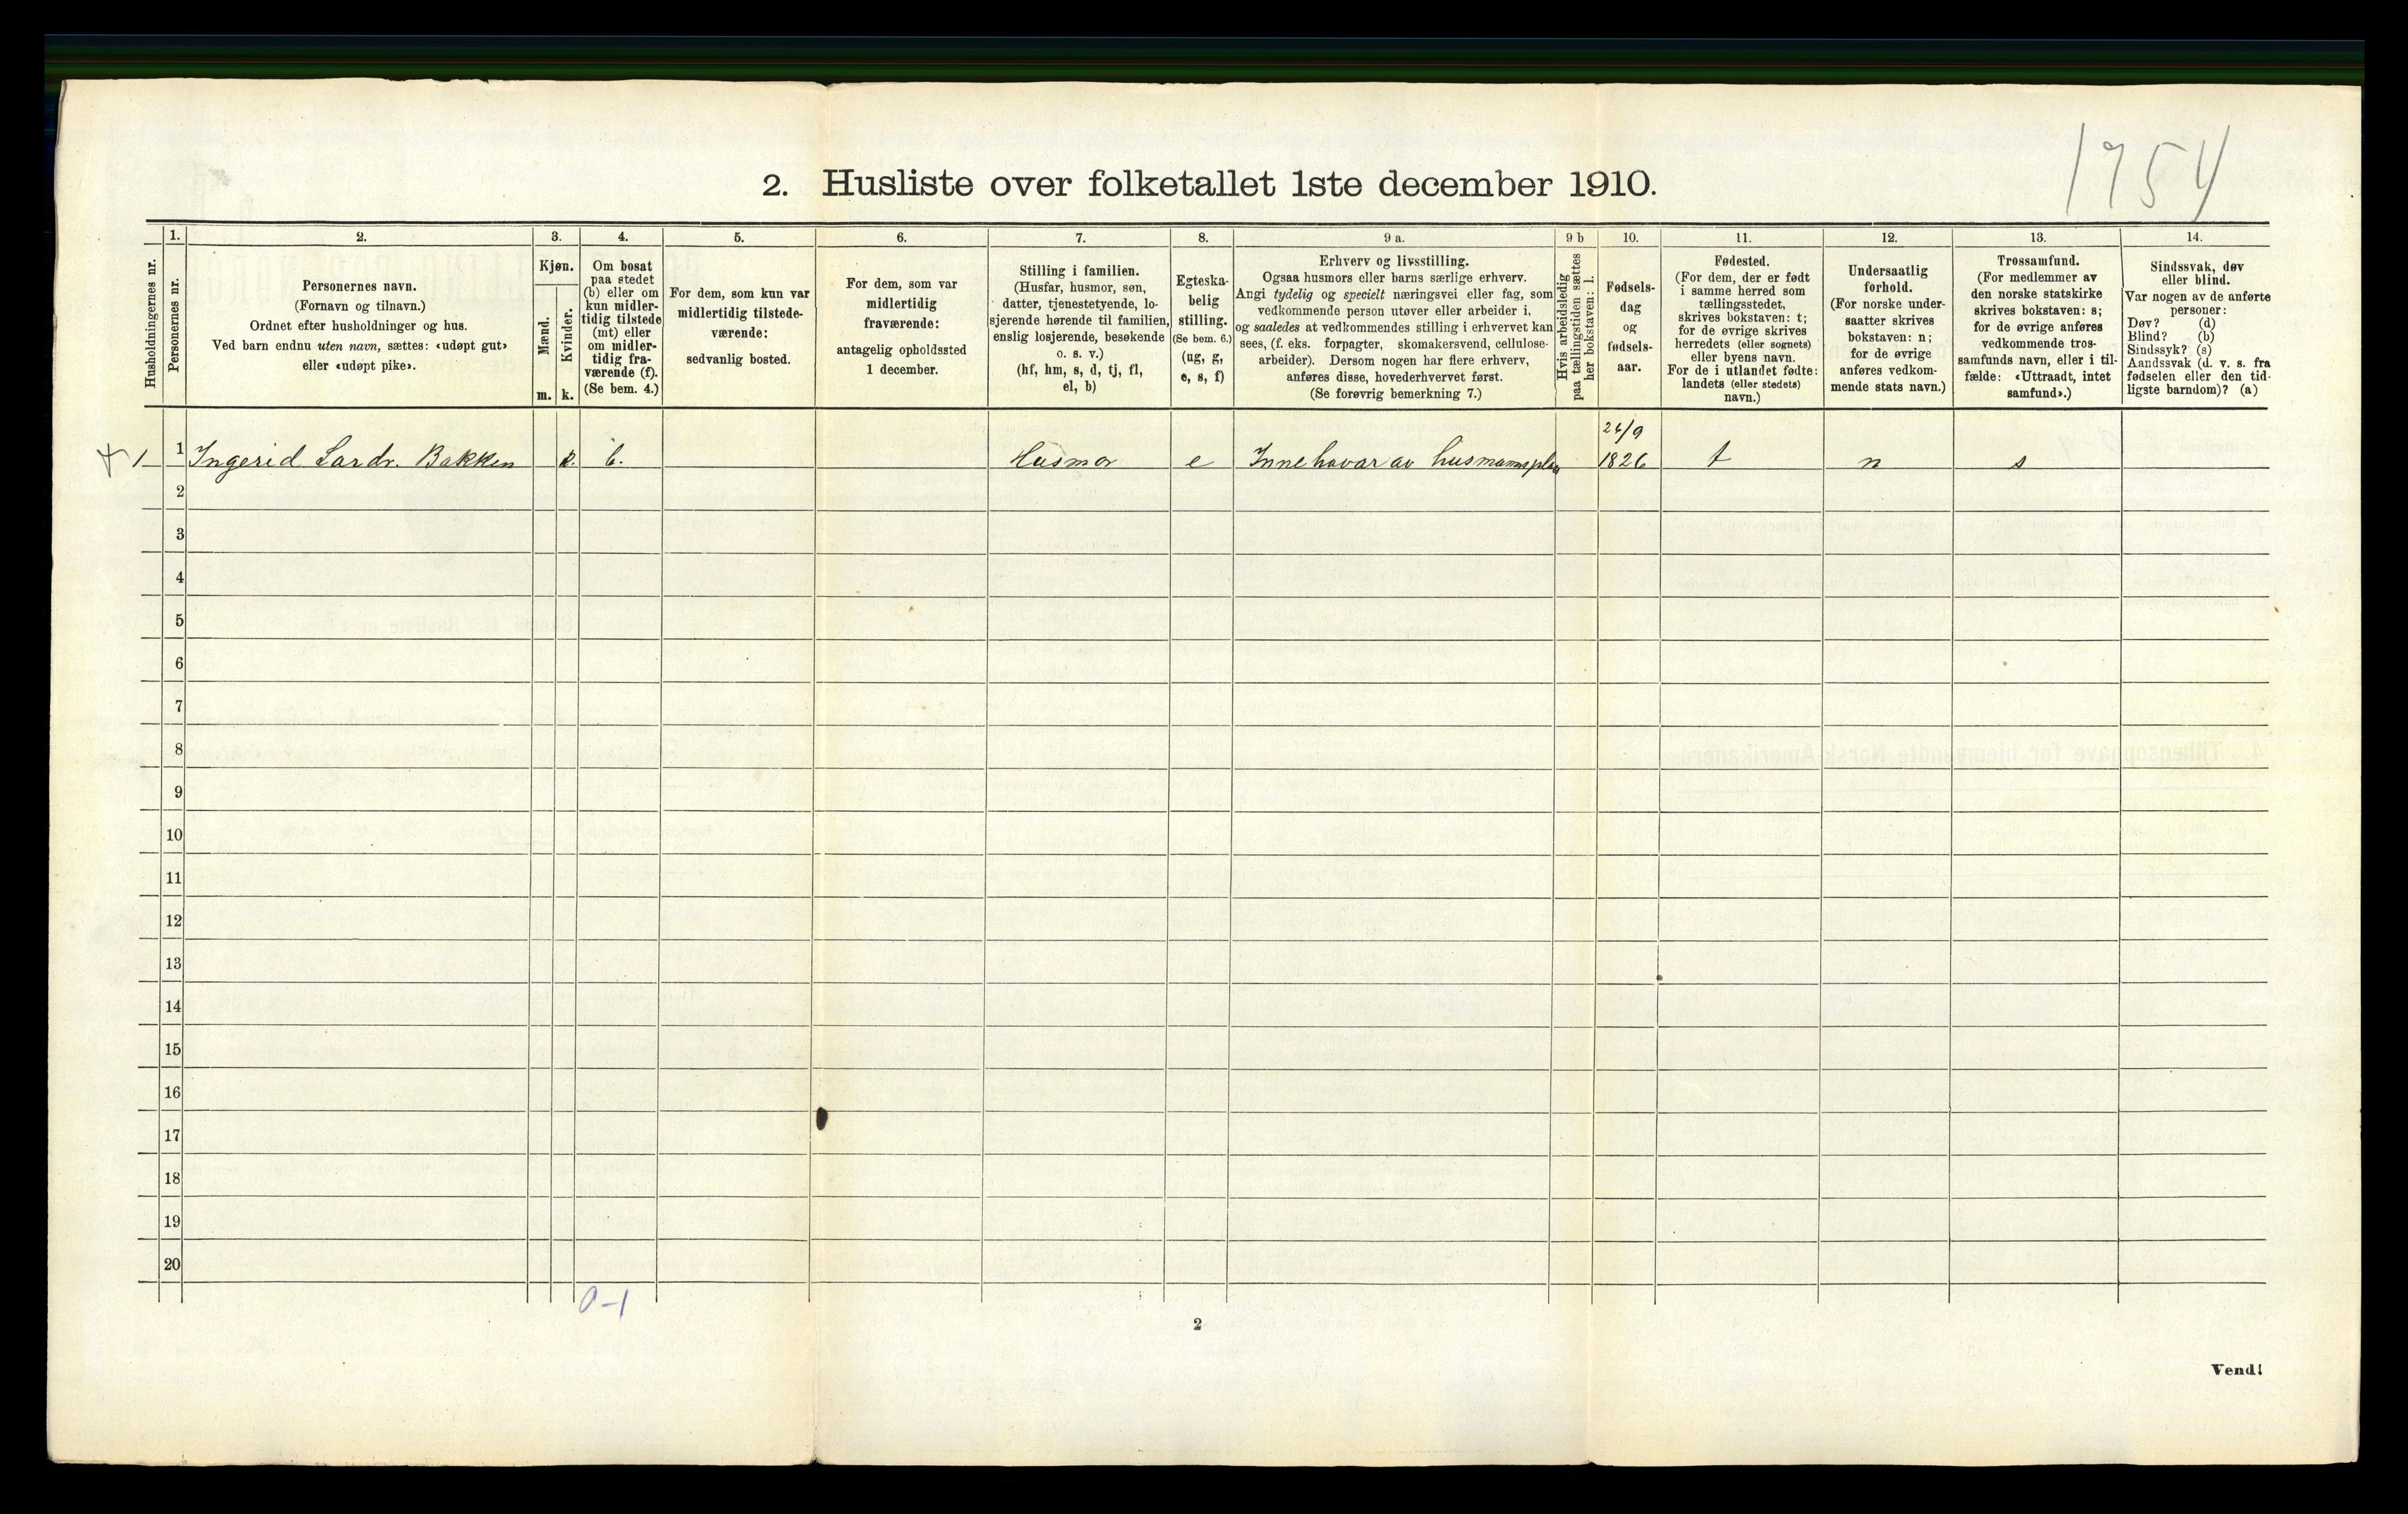 1954
2. Husliste over folketallet 1ste december 1910.
Husholdningernes nr.
1.
Personernes nr.
2.
Personernes navn.
(Fornavn og tilnavn.)
Ordnet efter husholdninger og hus.
Ved barn endnu uten navn, sættes: «udøpt gut»
eller «udøpt pike».
3.
Kjøn.
Mænd.
Kvinder.
m. k.
4.
Om bosat
paa stedet
(b) eller om
kun midler-
tidig tilstede
(mt) eller
om midler-
tidig fra-
værende (f).
(Se bem. 4.)
5.
For dem, som kun var
midlertidig tilstede-
værende:
sedvanlig bosted.
6.
For dem, som var
midlertidig
fraværende:
antagelig opholdssted
1 december.
7.
Stilling i familien.
(Husfar, husmor, søn,
datter, tjenestetyende, lo-
sjerende hørende til familien,
enslig losjerende, besøkende
o. s. v.)
(hf, hm, s, d, tj, fl,
el, b)
8.
Egteska-
belig
stilling.
(Se bem. 6.)
(ug, g,
e, s, f)
9 a.
Erhverv og livsstilling.
Ogsaa husmors eller barns særlige erhverv.
Angi tydelig og specielt næringsvei eller fag, som
vedkommende person utøver eller arbeider i,
og saaledes at vedkommendes stilling i erhvervet kan
sees, (f. eks. forpagter, skomakersvend, cellulose-
arbeider). Dersom nogen har flere erhverv,
anføres disse, hovederhvervet først.
(Se forøvrig bemerkning 7.)
9 b
Hvis arbeidsledig
paa tællingstiden sættes
her bokstaven: l.
10.
Fødsels-
dag
og
fødsels-
aar.
11.
Fødested.
(For dem, der er født
i samme herred som
tællingsstedet,
skrives bokstaven: t;
for de øvrige skrives
herredets (eller sognets)
eller byens navn.
For de i utlandet fødte:
landets (eller stedets)
navn.)
12.
Undersaatlig
forhold.
(For norske under-
saatter skrives
bokstaven: n;
for de øvrige
anføres vedkom-
mende stats navn.)
13.
Trossamfund.
(For medlemmer av
den norske statskirke
skrives bokstaven: s;
for de øvrige anføres
vedkommende tros-
samfunds navn, eller i til-
fælde: «Uttraadt, intet
samfund».)
14.
Sindssvak, døv
eller blind.
Var nogen av de anførte
personer:
Døv? (d)
Blind? (b)
Sindssyk? (s)
Aandssvak (d. v. s. fra
fødselen eller den tid-
ligste barndom)? (a)
1 1 Ingerid Lardr. Bakken k. b. Husmor e Innehavar av husmannsplass 24/9 1826 t n s
2
3
4
5
6
7
8
9
10
11
12
13
14
15
16
17
18
19
20
0-1
2
Vend!